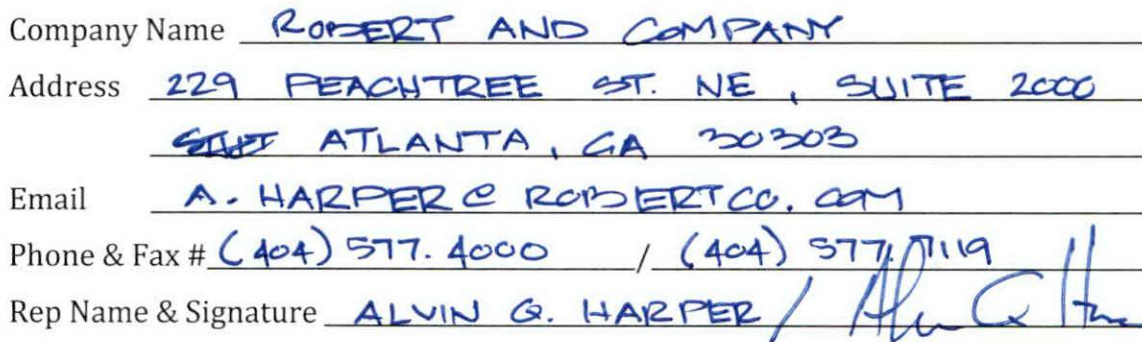 Company Name ROBERT AND COMPANY
Address 229 PEACHTREE ST. NE, SUITE 2000
ATLANTA, GA 30303
Email A.HARPER@ROBERTCO.COM
Phone & Fax # (404) 577.4000 / (404) 577.7119
Rep Name & Signature ALVIN G. HARPER /